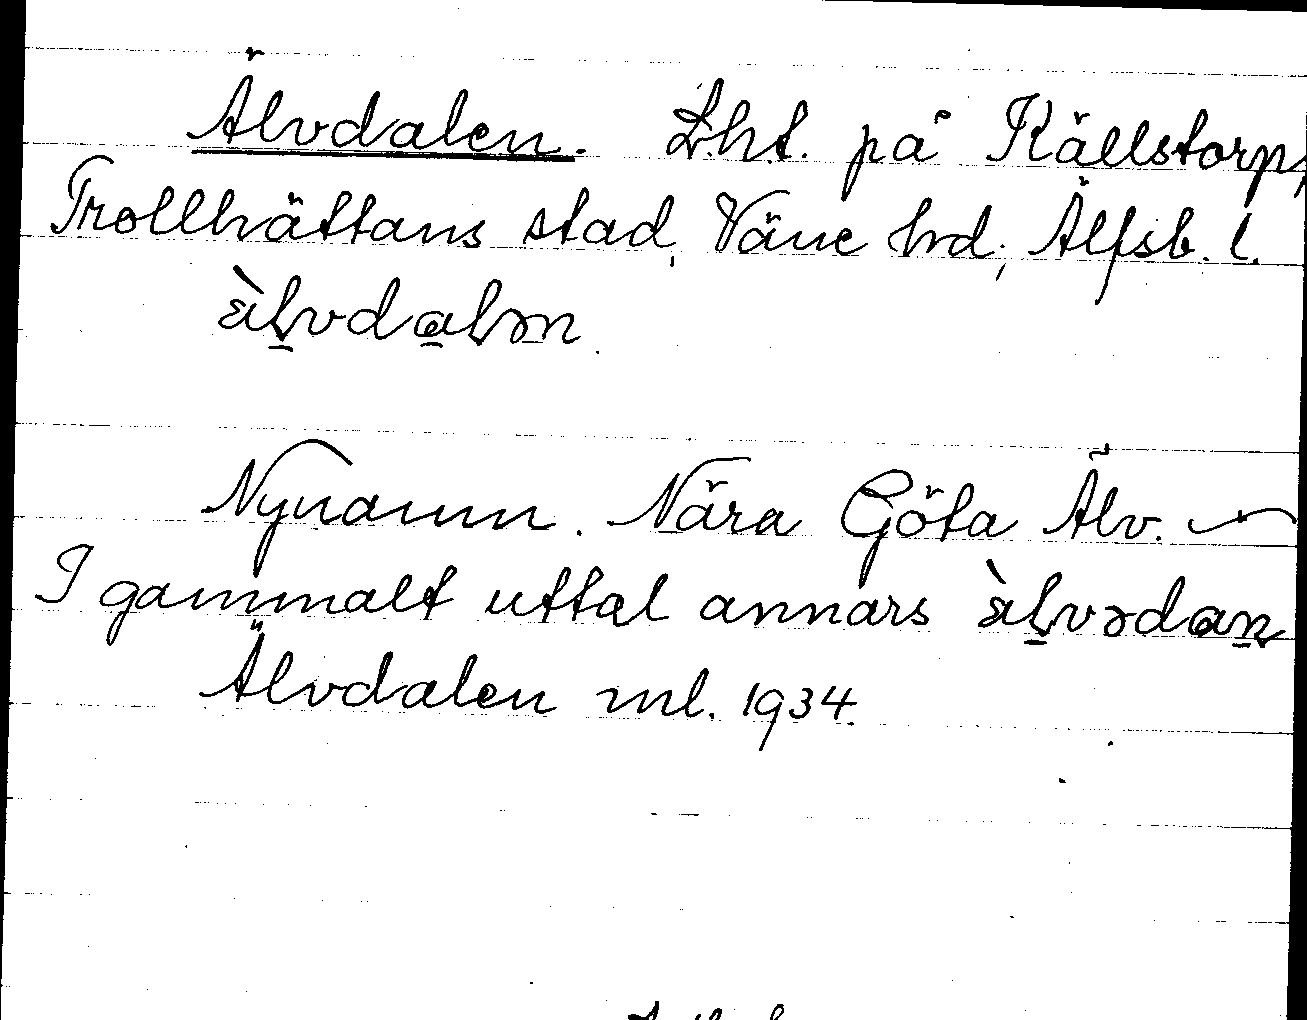 Älvdalen. Lht. på Källstorp,
Trollhättans stad, Väne hd; Älfsb. l.
ὲḷvdaḷən
Nynamn. Nära Göta Älv. —
I gammalt uttal annars ὲḷvədaṉ
Älvdalen ml. 1934.